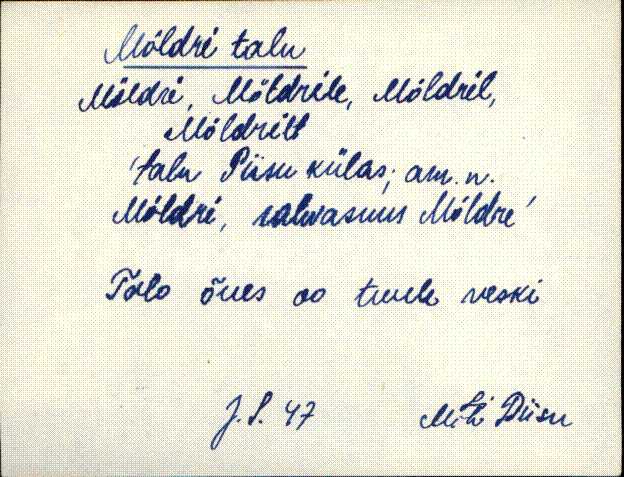 Móldri talu
Móldri, Móldrile, Móldril,
Móldrilt
'talu Piisu külas; am. n.
Móldri, rahvasuus Móldre'
Talo õues oo tuule veski
J. S. 47 Mih Piisu